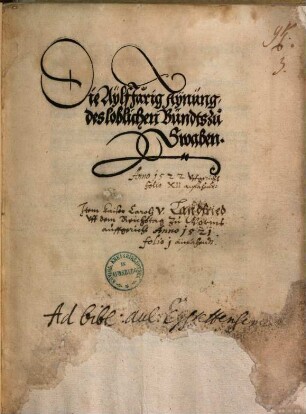 Die Aylffjärig Aynung
des loblichen Bundts zu
Swaben.
Anno 1522
folio XII
Item Kaiser Carols v. Landfried
vff dem Reichstag zu Worms
auffgericht Anno 1521
folio 1
Ad bibl: aul: Eystettensem